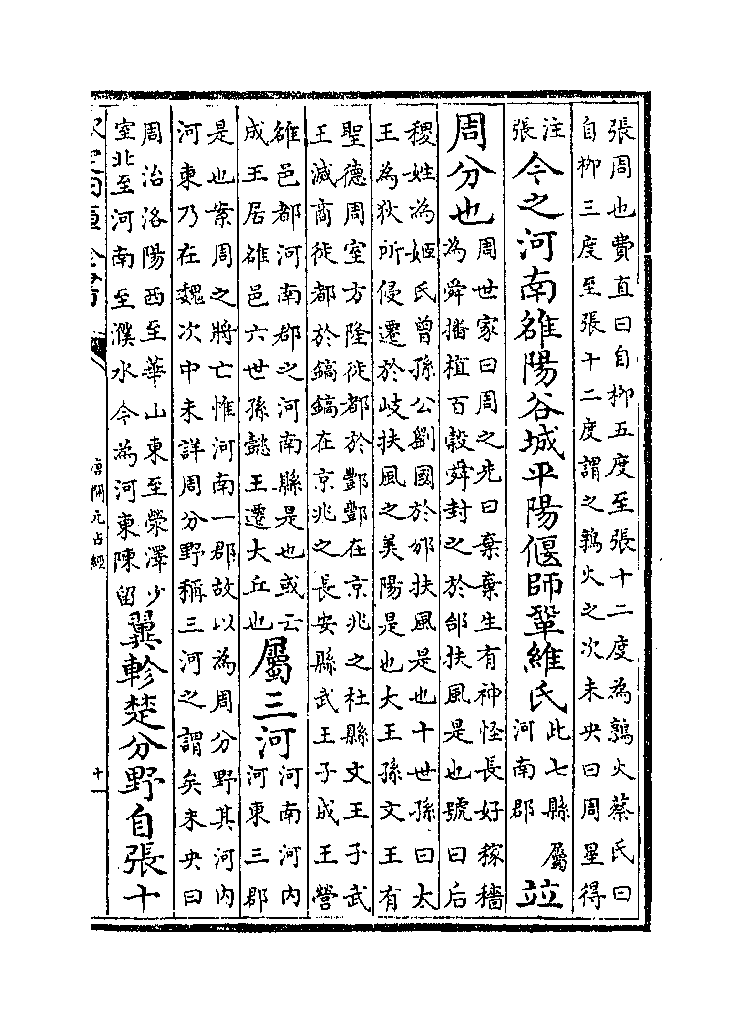 張周也費直曰自柳五度至張十二度為鶉火蔡氏曰
自柳三度至張十二度謂之鶉火之次未央曰周星得
注張今之河南雒陽谷城平陽偃師鞏維氏此七縣屬河南郡竝
周分也周世家曰周之先曰棄棄生有神怪長好稼穡
為舜播植百穀舜封之於邰扶風是也號曰后
稷姓為姬氏曾孫公劉國於邠扶風是也十世孫曰太
王為狄所侵遷於岐扶風之美陽是也大王孫文王有
聖德周室方隆徙都於酆酆在京兆之杜縣文王子武
王滅商徙都於鎬鎬在京兆之長安縣武王子成王營
雒邑都河南郡之河南縣是也或云
成王居雒邑六世孫懿王遷大丘也屬三河河南河内河東三郡
是也案周之將亡惟河南一郡故以為周分野其河内
河東乃在魏次中未詳周分野稱三河之謂矣未央曰
周治洛陽西至華山東至滎澤少
室北至河南至濮水今為河東陳留翼軫楚分野自張十
欽定四庫全書
唐開元占經
十一